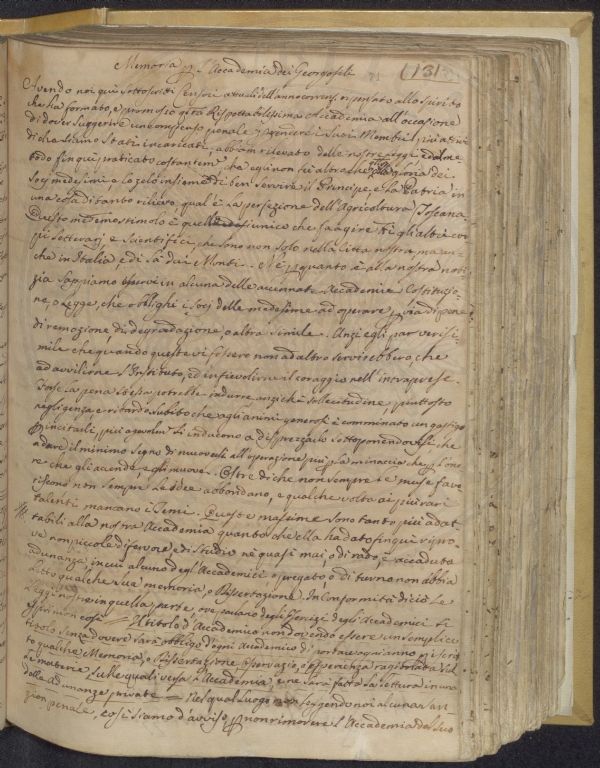 Memoria p l'Accademia dei Georgofili
(131)
Avendo noi qui sottoscritti Censori attuali dell'anno corrense ripensato allo Spirito
che ha formato, e promosso qta Rispettabilissima Accademia all'occasione
di dover suggerire un compenso penale p rendere i suoi Membri più attivi
di che siamo stati incaricati, abbiam rilevato delle nostre leggi, e dal me
todo fin qui praticato costantem che egli non fu altro che la gloria dei
Socj medesimi, e lo zelo insieme di ben servire il Principe, e la Patria in
una cosa di tanto rilievo, qual è la perfezione dell'Agricoltura Toscana.
Questo medemo stimolo è quello unico che fa agire tti gli altri cor
pi Letterarj, e Scientifici, che sono non solo nella Città nostra, ma an
che in Italia, e di là dai Monti. Nè p quanto è alla nostra noti
zia sappiamo esservi in alcuna delle accennate Accademie Costituzio
ne, o Legge, che obblighi i Socj delle medesime ad operare p via di pene
di remozione, di degradazione, o altra simile. Anzi egli par verisi
mile che quando queste vi fossero non ad altro servirebbero, che
ad avvilirne l'Instituto, ed infievolirne il coraggio nell'intraprese.
Forse la pena stessa potrebbe indurre anziché sollecitudine, piuttosto
negligenza e ritardo subito che agli animi generosi è comminato un gastigo
p incitarli, più agevolm si inducono a disprezzarlo sottoponendovisi, che
a dare il minimo segno di muoversi all'operazione più p la minaccia che p l'ono
re che gli accende e gli muove. Oltre di che non sempre le muse fave
riscono non sempre le idee abbondano, e qualche volta ai più rari
talenti mancano i Temi. Queste massime sono tanto più adat
tabili alla nostra Accademia quanto che ella ha dato fin qui ripro
ve non piccole di fervore, e di studio nè quasi mai, o di rado è accaduta
adunanza in cui alcuno degl'Accademici o pregato, o di turno non abbia
letto qualche sua memoria, o Dissertazione. In conformità di ciò le
Leggi nostre in quella parte, ove parlano degli Esercizi degli Accademici si
esprimon così = Il titolo d'Accademico non dovendo essere un semplice
titolo senza dovere sarà obbligo d'ogni Accademico di portare ogni anno in iscrit
to qualche Memoria, o Dissertazione Osservazio, o esperienza ragionata sul
le materie, sulle quali versa l'Accademia, e ne sarà fatta la lettura in una
delle adunanze private = Nel qual luogo non leggendo noi alcuna san
zion penale, così siamo d'avviso p non rimovere l'Accademia dal suo